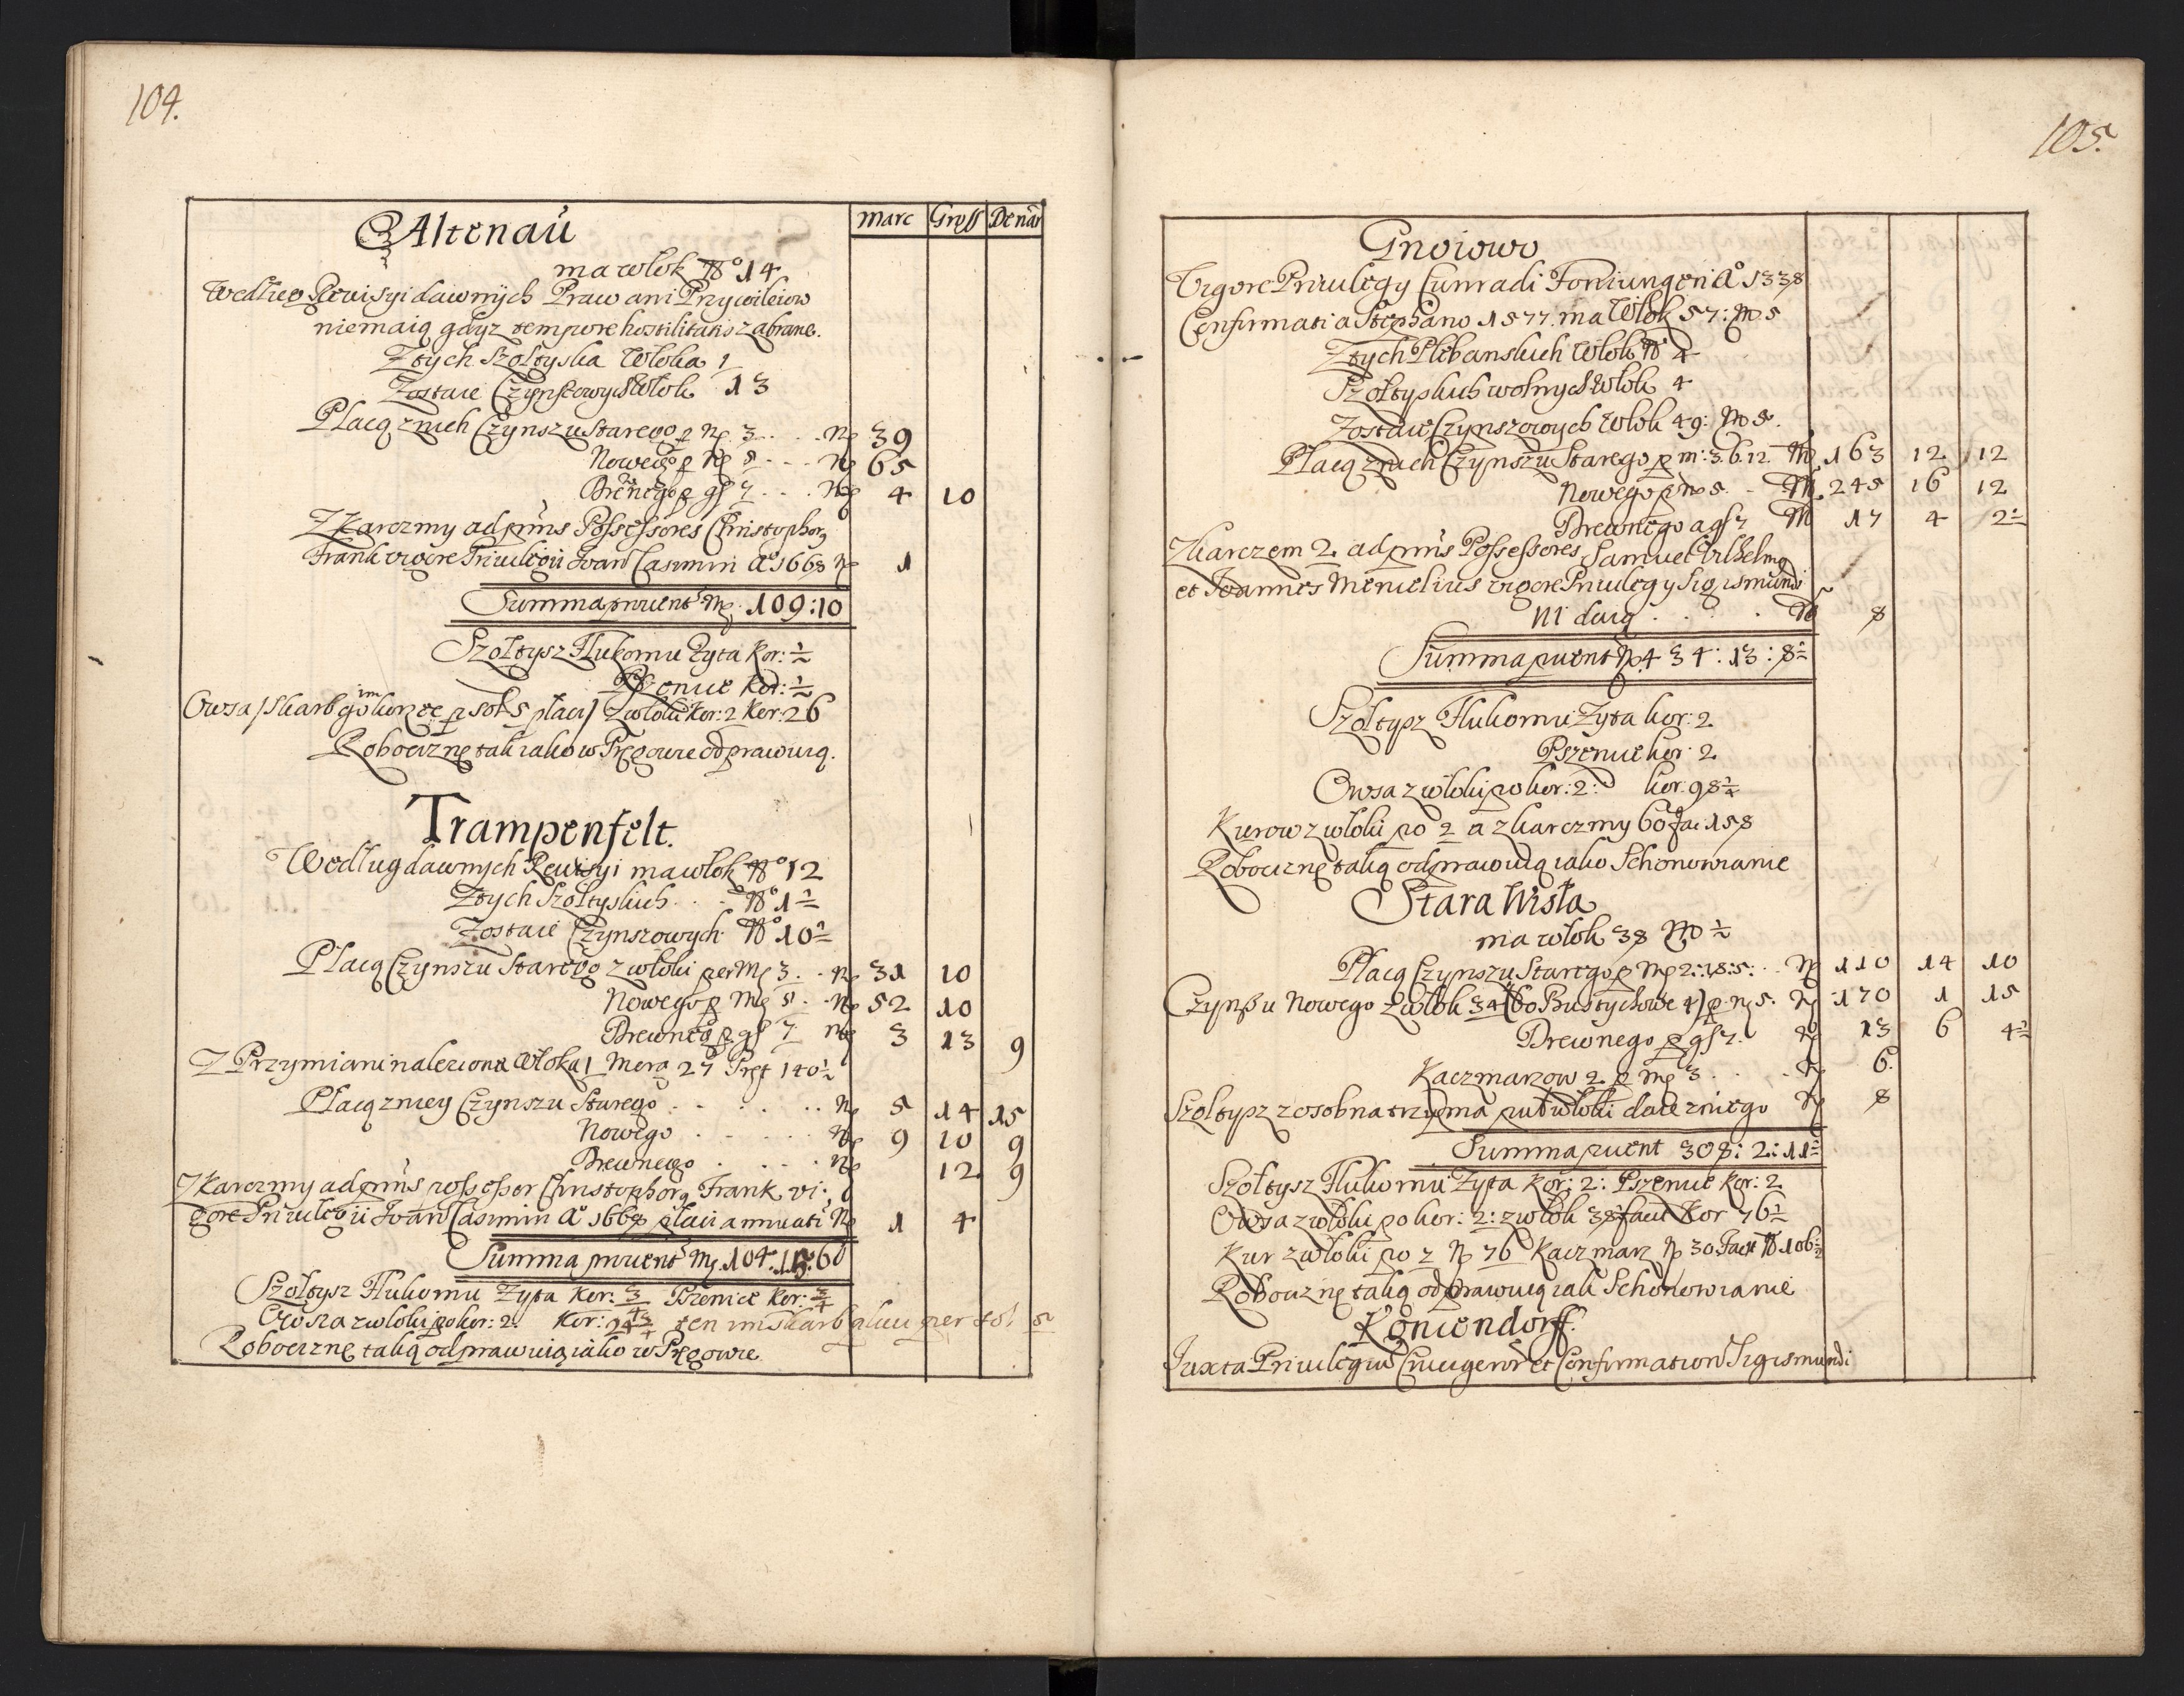 104.
Altenau
Marc Gross Denar
ma wlok No 14
Według Rewisyi dawnÿch Praw ani Przywileiow
niemaią gdyz tempore hostilitatis zabrane.
Ztych Szołtyska Włoka 1
Zostaie Czynszowych Włok 13
Płacą znich Czynszu Starego p. Mg 3 . . . . Mg 39
Nowego p. Mg 5 . . . Mg 65
Drewnego p. gß 7 . . . Mg 4 10
Z Karczmy ad pnns Possessores Christophorg
Frank vigore Priuilegii Ioan Casimiri Ao 1668 Mg 1
Summa prouent Mg. 109:10
Szołtysz Flukomu Zyta Kor: ½
Pszenice Kor: ½
Owsa /Skarb im go korzec p sol: 5 płaci/ Zwłoki Kor: 2 Kor: 26
Robociznę tak iako w Pręgowie odprawuią.
Trampenfelt.
Według dawnych Rewisyi ma włok No 12
Ztych Szołtyskich . . . No 1½
Zostaie Czynszowych No 10½
Płacą Czynszu Starego z włoki per Mg 3 . . Mg 31 10
Nowego p. Mg 5 . . Mg 52 10
Drewnego p. gß 7 Mg 3 13 9
Z Przymiani nalezionᶏ Włoka 1 Morg 27 Pręt 140½
Płacą zniey Czynszu Starego . . . . . . Mg 5 14 15
Nowego . . . . . Mg 9 10 9
Drewnego . . . . Mg 12 9
Z Karczmy ad pnns possessor Christophorg Frank vi-
gore Priuilegii Ioan Casimiri Ao 1668 płaci annuati Mg 1 4
Summa prouent Mg. 104.15.6
Szołtysz Flukomu Zyta Kor: ¾ Pszenice Kor: ¾
Owsa z włoki po kor: 2: Kor: 24¾ ten im skarb płaci per sol 5
Robociznę taką odprawuią iako w Pręgowie
105.
Gnoiowo
Vigore Priuilegy Cunradi Ao 1338
Confirmati a Stephano 1577. ma Włok 57: M 5
Ztych Plebanskich Włok No 4
Szołtyskich wolnych Włok 4
Zostaie Czynszowych Włok 49: M 5.
Płacą znich Czynszu Starego p m: 3.6.12. M 163 12 12
Nowego p M 5. M. 245 16 12
Drewnego a gß 7 M 17 4 2½
Z karczem 2. ad pnns Possessores Samuel Vilhelmg
et Ioannes Menielius vigore Priuilegy Sigismundi
III daią . . . . M 8
Summa puent Mg 434:13:8½
Szołtysz Flukomu Zyta kor: 2
Pszenice kor: 2
Owsa z włoki po kor: 2: kor: 98¼
Kurow z włoki po 2 a z karczmy 60 fac: 158
Robociznę taką odprawuią iako Schonowianie
Stara Wisła
ma włok 38 M ½
Płacą Czynszu Starego p Mg 2:18:5: . . Mg 110 14 10
Czynszu Nowego z włok 34 (bo Pustychowe 4) p Mg 5. Mg 170 1 15
Drewnego p gß 7. Mg 13 6 4½
Kaczmarzow 2 p Mg 3 . . . . Mg 6.
Szołtysz zosobna trzyma puł włoki daie zniego Mg 8
Summa puent 308: 2: 11½
Szołtysz Flukomu Zyta Kor: 2: Pszenice Kor: 2
Owsa z włoki po kor: 2: z włok 38 facit Kor 76½
Kur z włoki po 2 No 76 Kaczmarz No 30 Facit No 106½
Robociznę taką odprawuią iak Schonowianie
Koniendorff.
Iuxta Priuilegiu et Confirmation Sigismundi